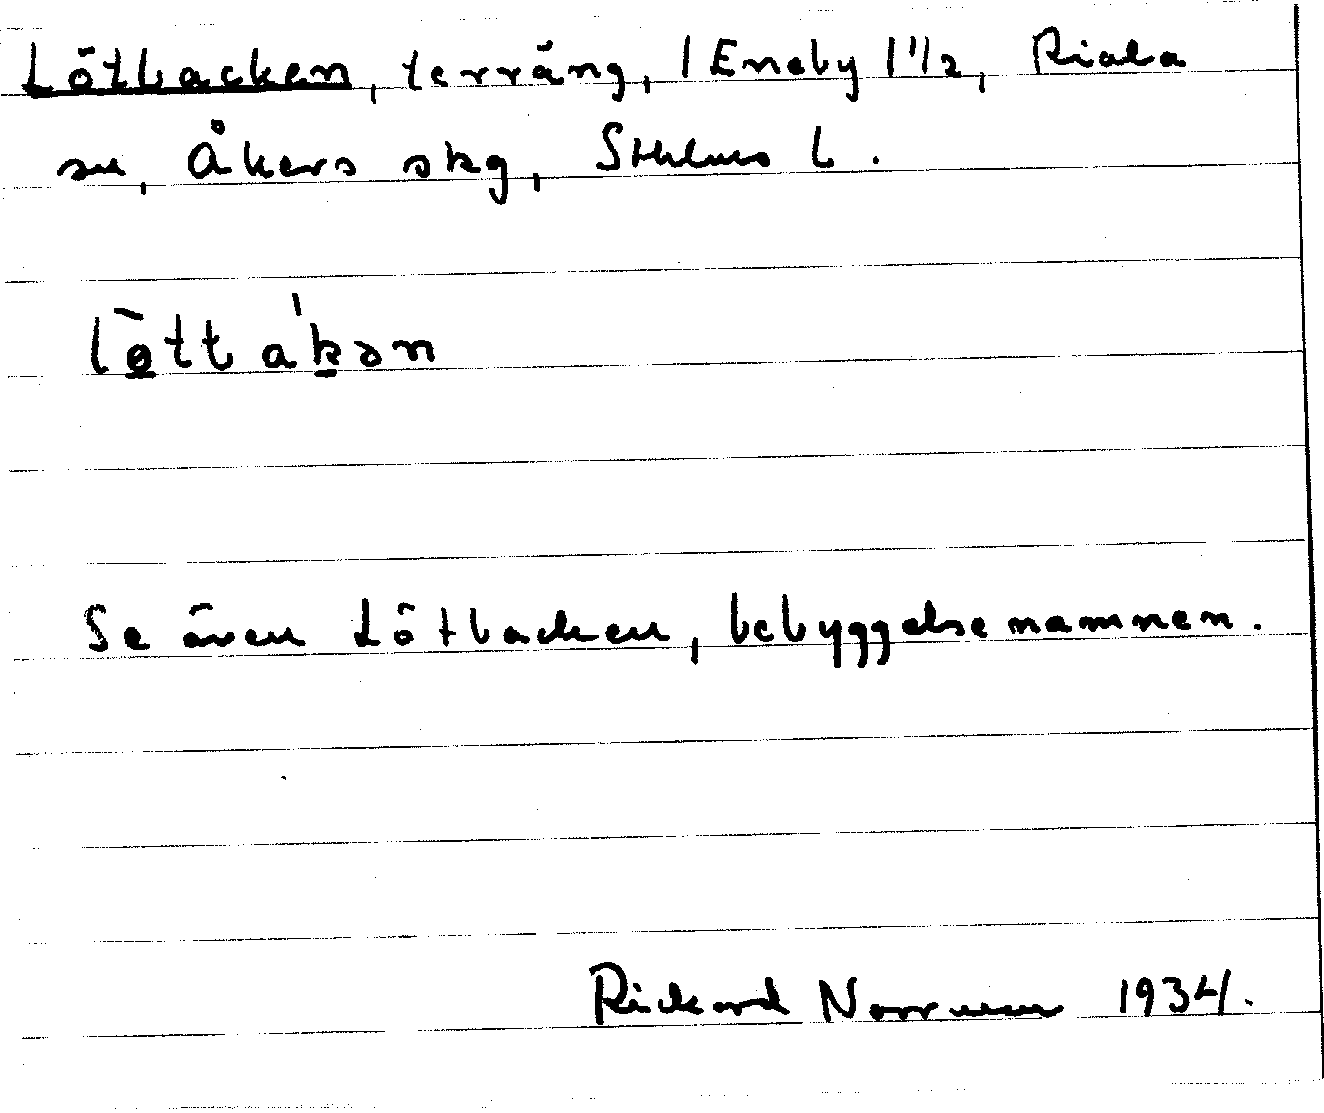 Lötbacken, terräng, 1 Eneby 1 1/2, Riala
sn, Åkers skg, Sthlms L.
Se även Lötbacken, bebyggelsenamnen.
Rickard Norrman 1934.